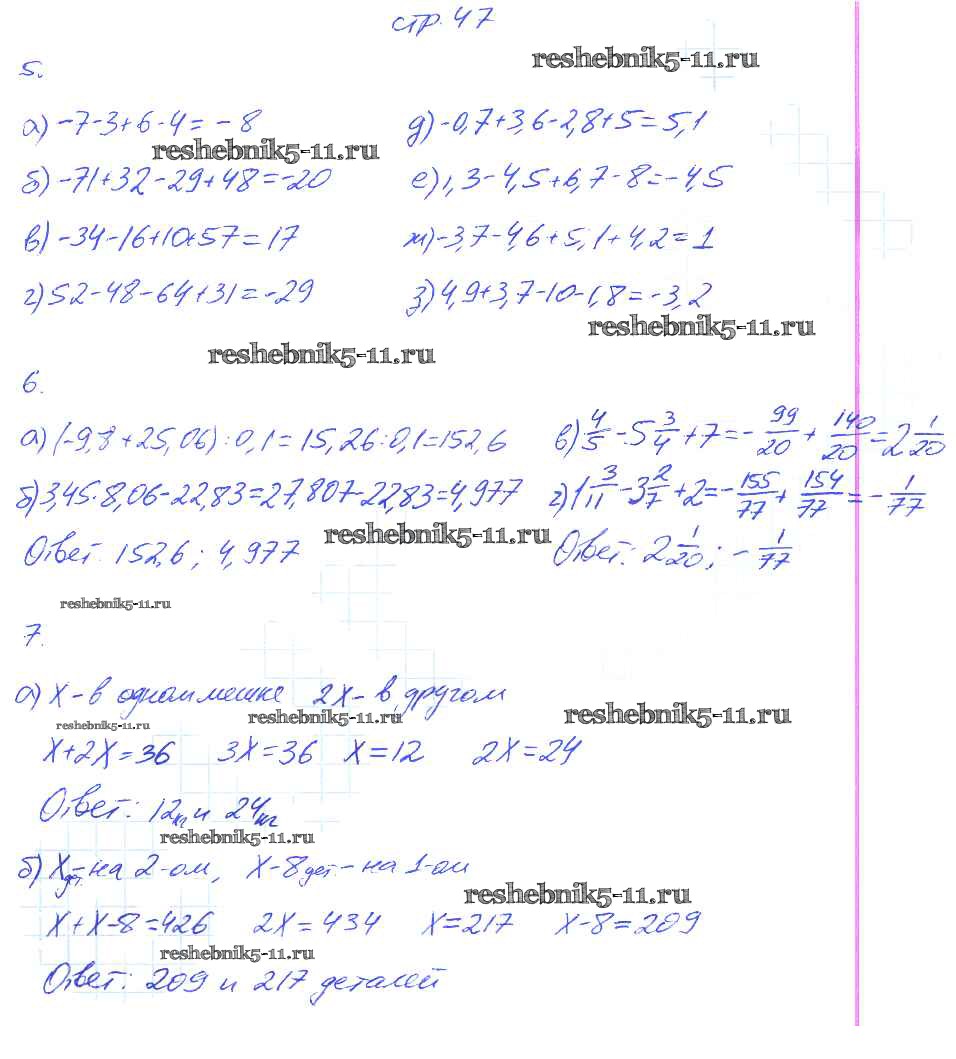 стр. 47
reshebnik5-11.ru
5.
а) -7-3+6-4=-8
д) -0,7+3,6-2,8+5=5,1
reshebnik5-11.ru
б) -71+32-29+48=-20
е) 1,3-4,5+6,7-8=-4,5
в) -34-16+10+57=17
ж) -3,7-4,6+5,1+4,2=1
г) 52-48-64+31=-29
з) 4,9+3,7-10-1,8=-3,2
reshebnik5-11.ru
reshebnik5-11.ru
6.
а) (-9,8+25,06):0,1=15,26:0,1=152,6
в) 4/5-5 3/4+7=-99/20+140/20=2 1/20
б) 3,45·8,06-22,83=27,807-22,83=4,977
г) 1 3/11-3 2/7+2=-155/77+154/77=-1/77
Ответ: 152,6; 4,977
reshebnik5-11.ru
Ответ: 2 1/20; -1/77
reshebnik5-11.ru
7.
а) х-в одном мешке 2х-в другом
reshebnik5-11.ru
reshebnik5-11.ru
reshebnik5-11.ru
х+2х=36 3х=36 х=12 2х=24
Ответ: 12кг и 24кг
reshebnik5-11.ru
б) х дет.-на 2-ом, х-8 дет.-на 1-ом
reshebnik5-11.ru
х+х-8=426 2х=434 х=217 х-8=209
reshebnik5-11.ru
Ответ: 209 и 217 деталей